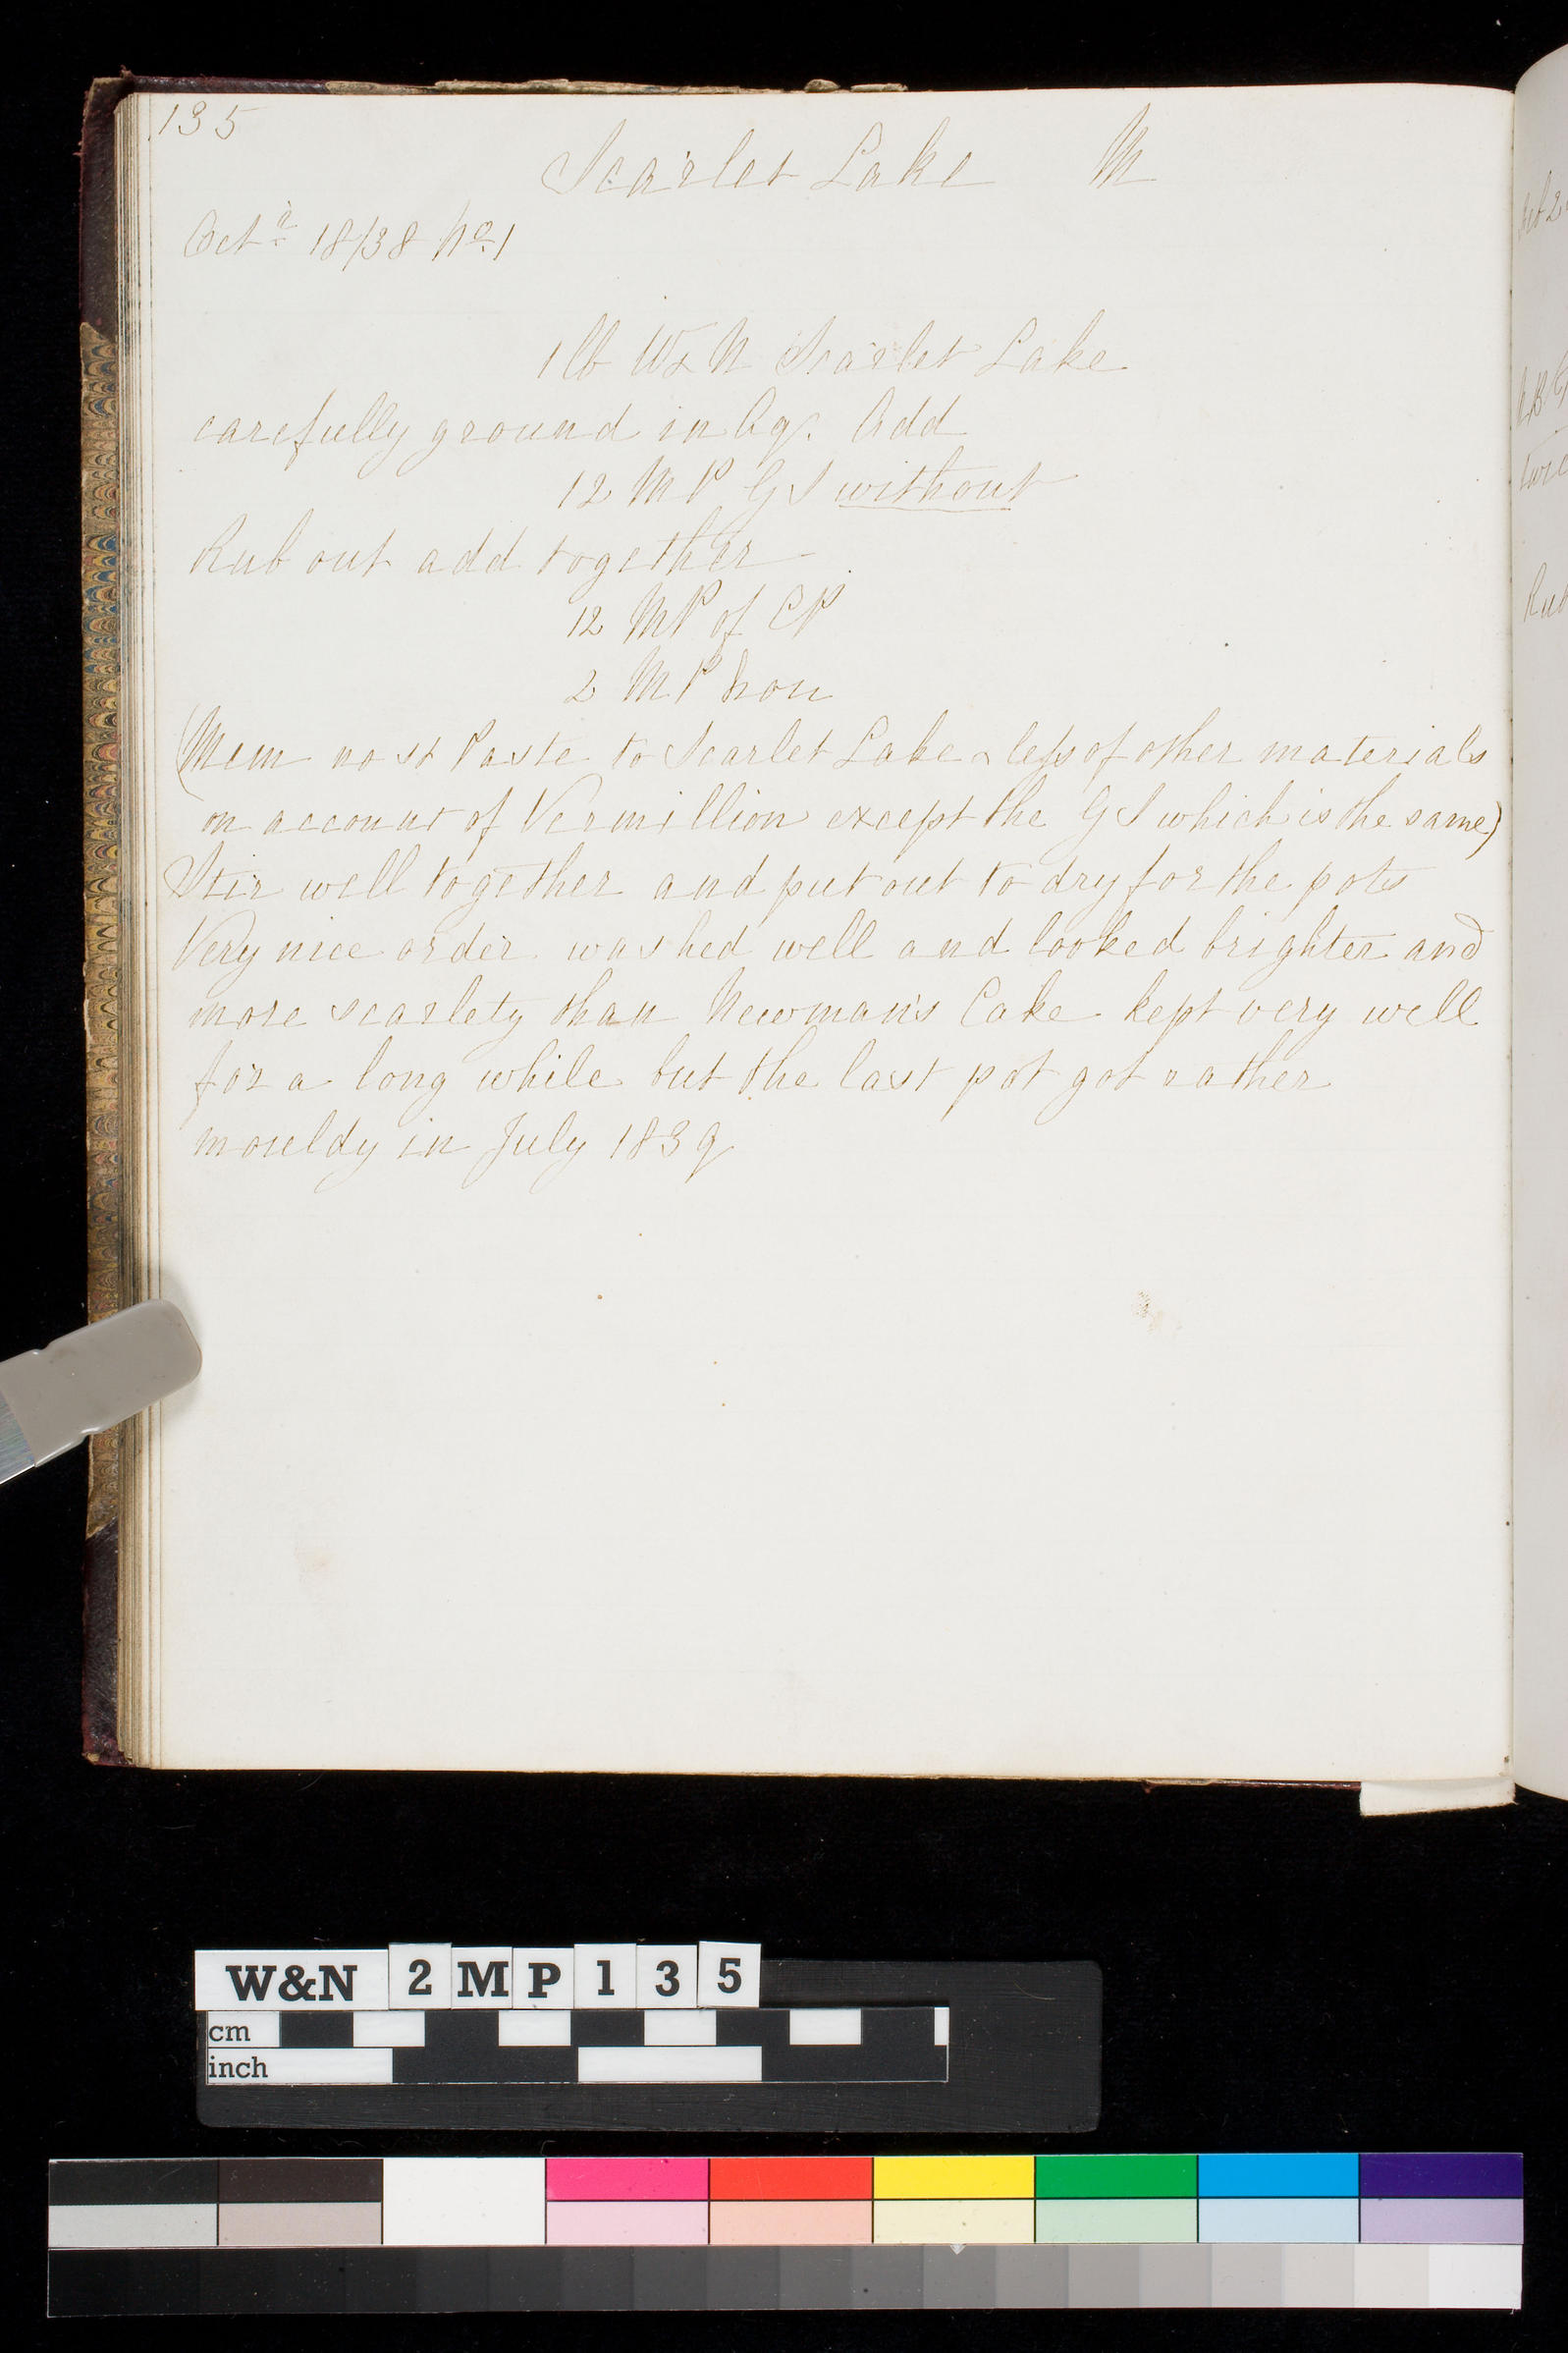 135
Scarlet Lake M
Octr 18/38 No 1
1 lb W & N Scarlet Lake
carefully ground in Aq. Add
12 MP GS without
Rub out add together
12 MP of CP
2 MP
(Mem no st Paste to Scarlet Lake & less of other materials
on account of Vermillion except the GS which is the same)
Stir well together and put out to dry for the pots
Very nice order washed well and looked brighter and
more scarlety than Newman's Lake kept very well
for a long while but the last pot got rather
mouldy in July 1839
W&N 2MP135
cm
inch